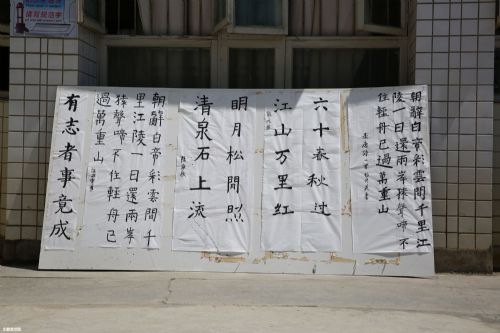 朝辭白帝彩雲間千里江
陵一日還兩岸猿聲啼不
住輕舟已過萬重山
六十春秋过
江山万里红
明月松間照
清泉石上流
朝辭白帝彩雲間千
里江陵一日還兩岸
猿聲啼不住輕舟已
過萬重山
有志者事竟成